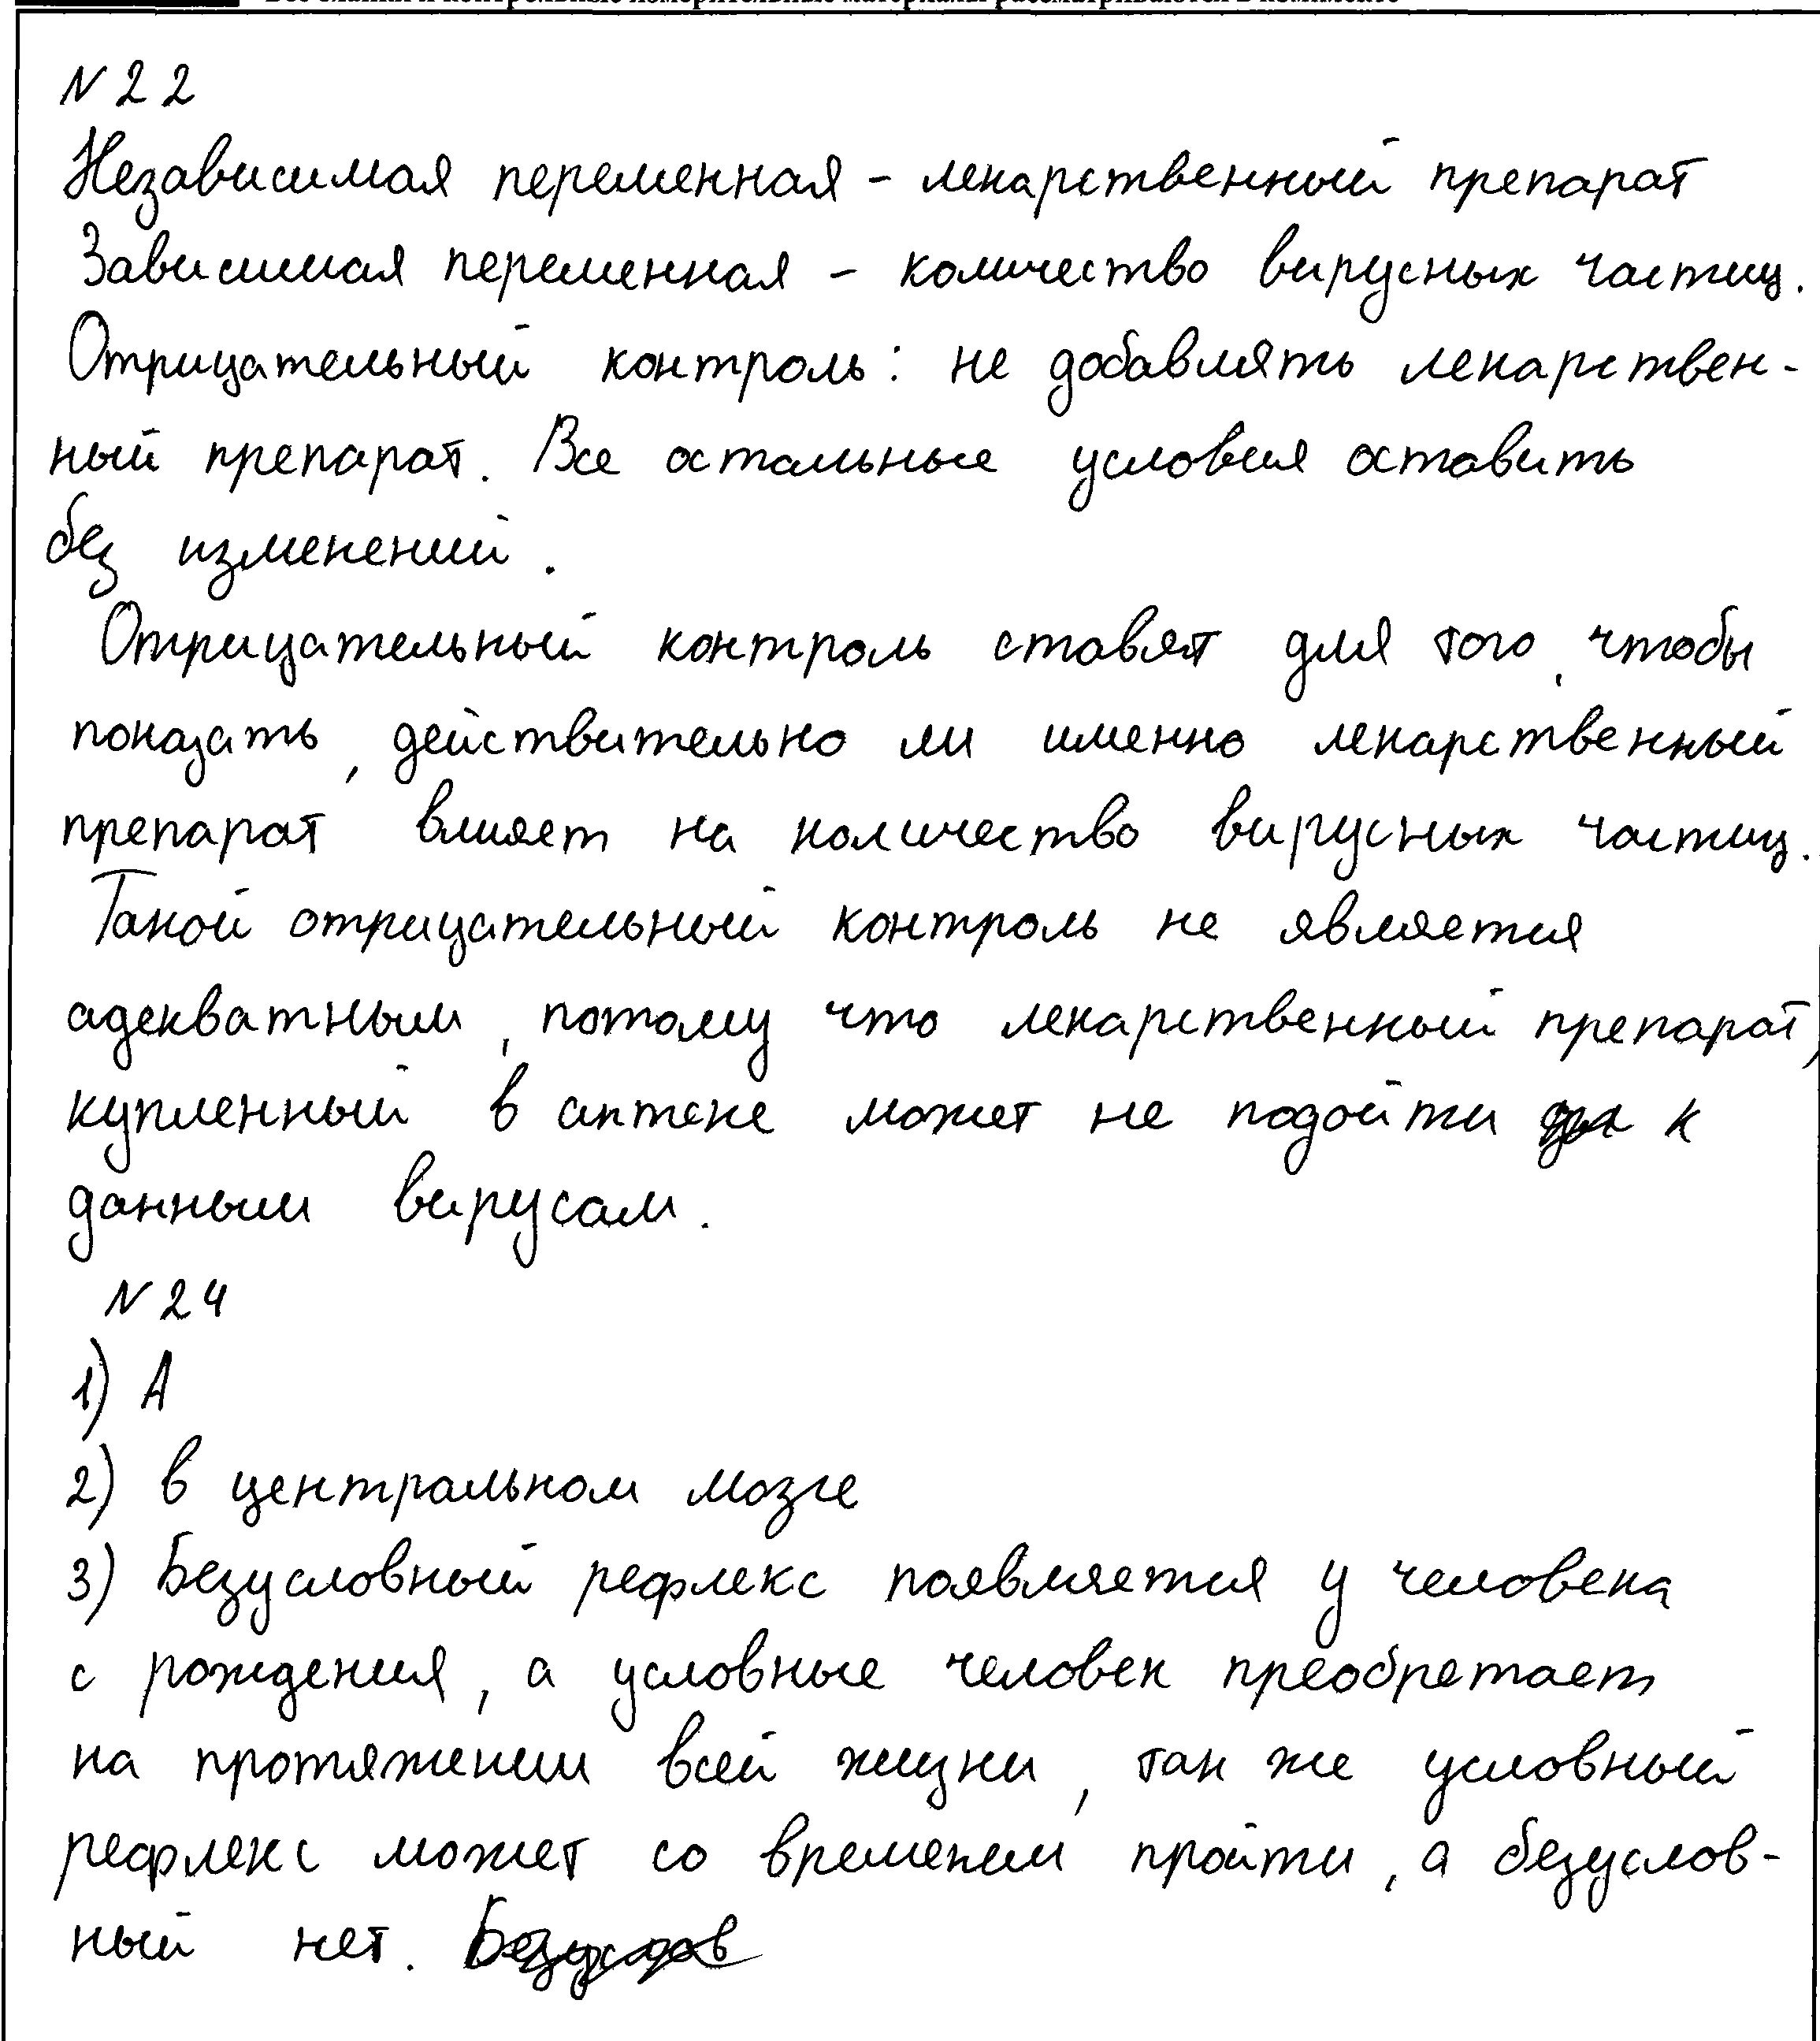 Все бланки и контрольные измерительные материалы рассматриваются в комплекте
N 22
Независимая переменная - лекарственный препарат
Зависимая переменная - количество вирусных частиц.
Отрицательный контроль: не добавлять лекарствен-
ный препарат. Все остальные условия оставить
без изменений.
Отрицательный контроль ставят для того, чтобы
показать, действительно ли именно лекарственный
препарат влияет на количество вирусных частиц.
Такой отрицательный контроль не является
адекватным, потому что лекарственный препарат,
купленный в аптеке может не подойти к
данным вирусам.
N 24
1) А
2) в центральном мозге
3) Безусловный рефлекс появляется у человека
с рождения, а условные человек преобретает
на протяжении всей жизни, так же условный
рефлекс может со временем пройти, а безуслов-
ный нет. Безуслов